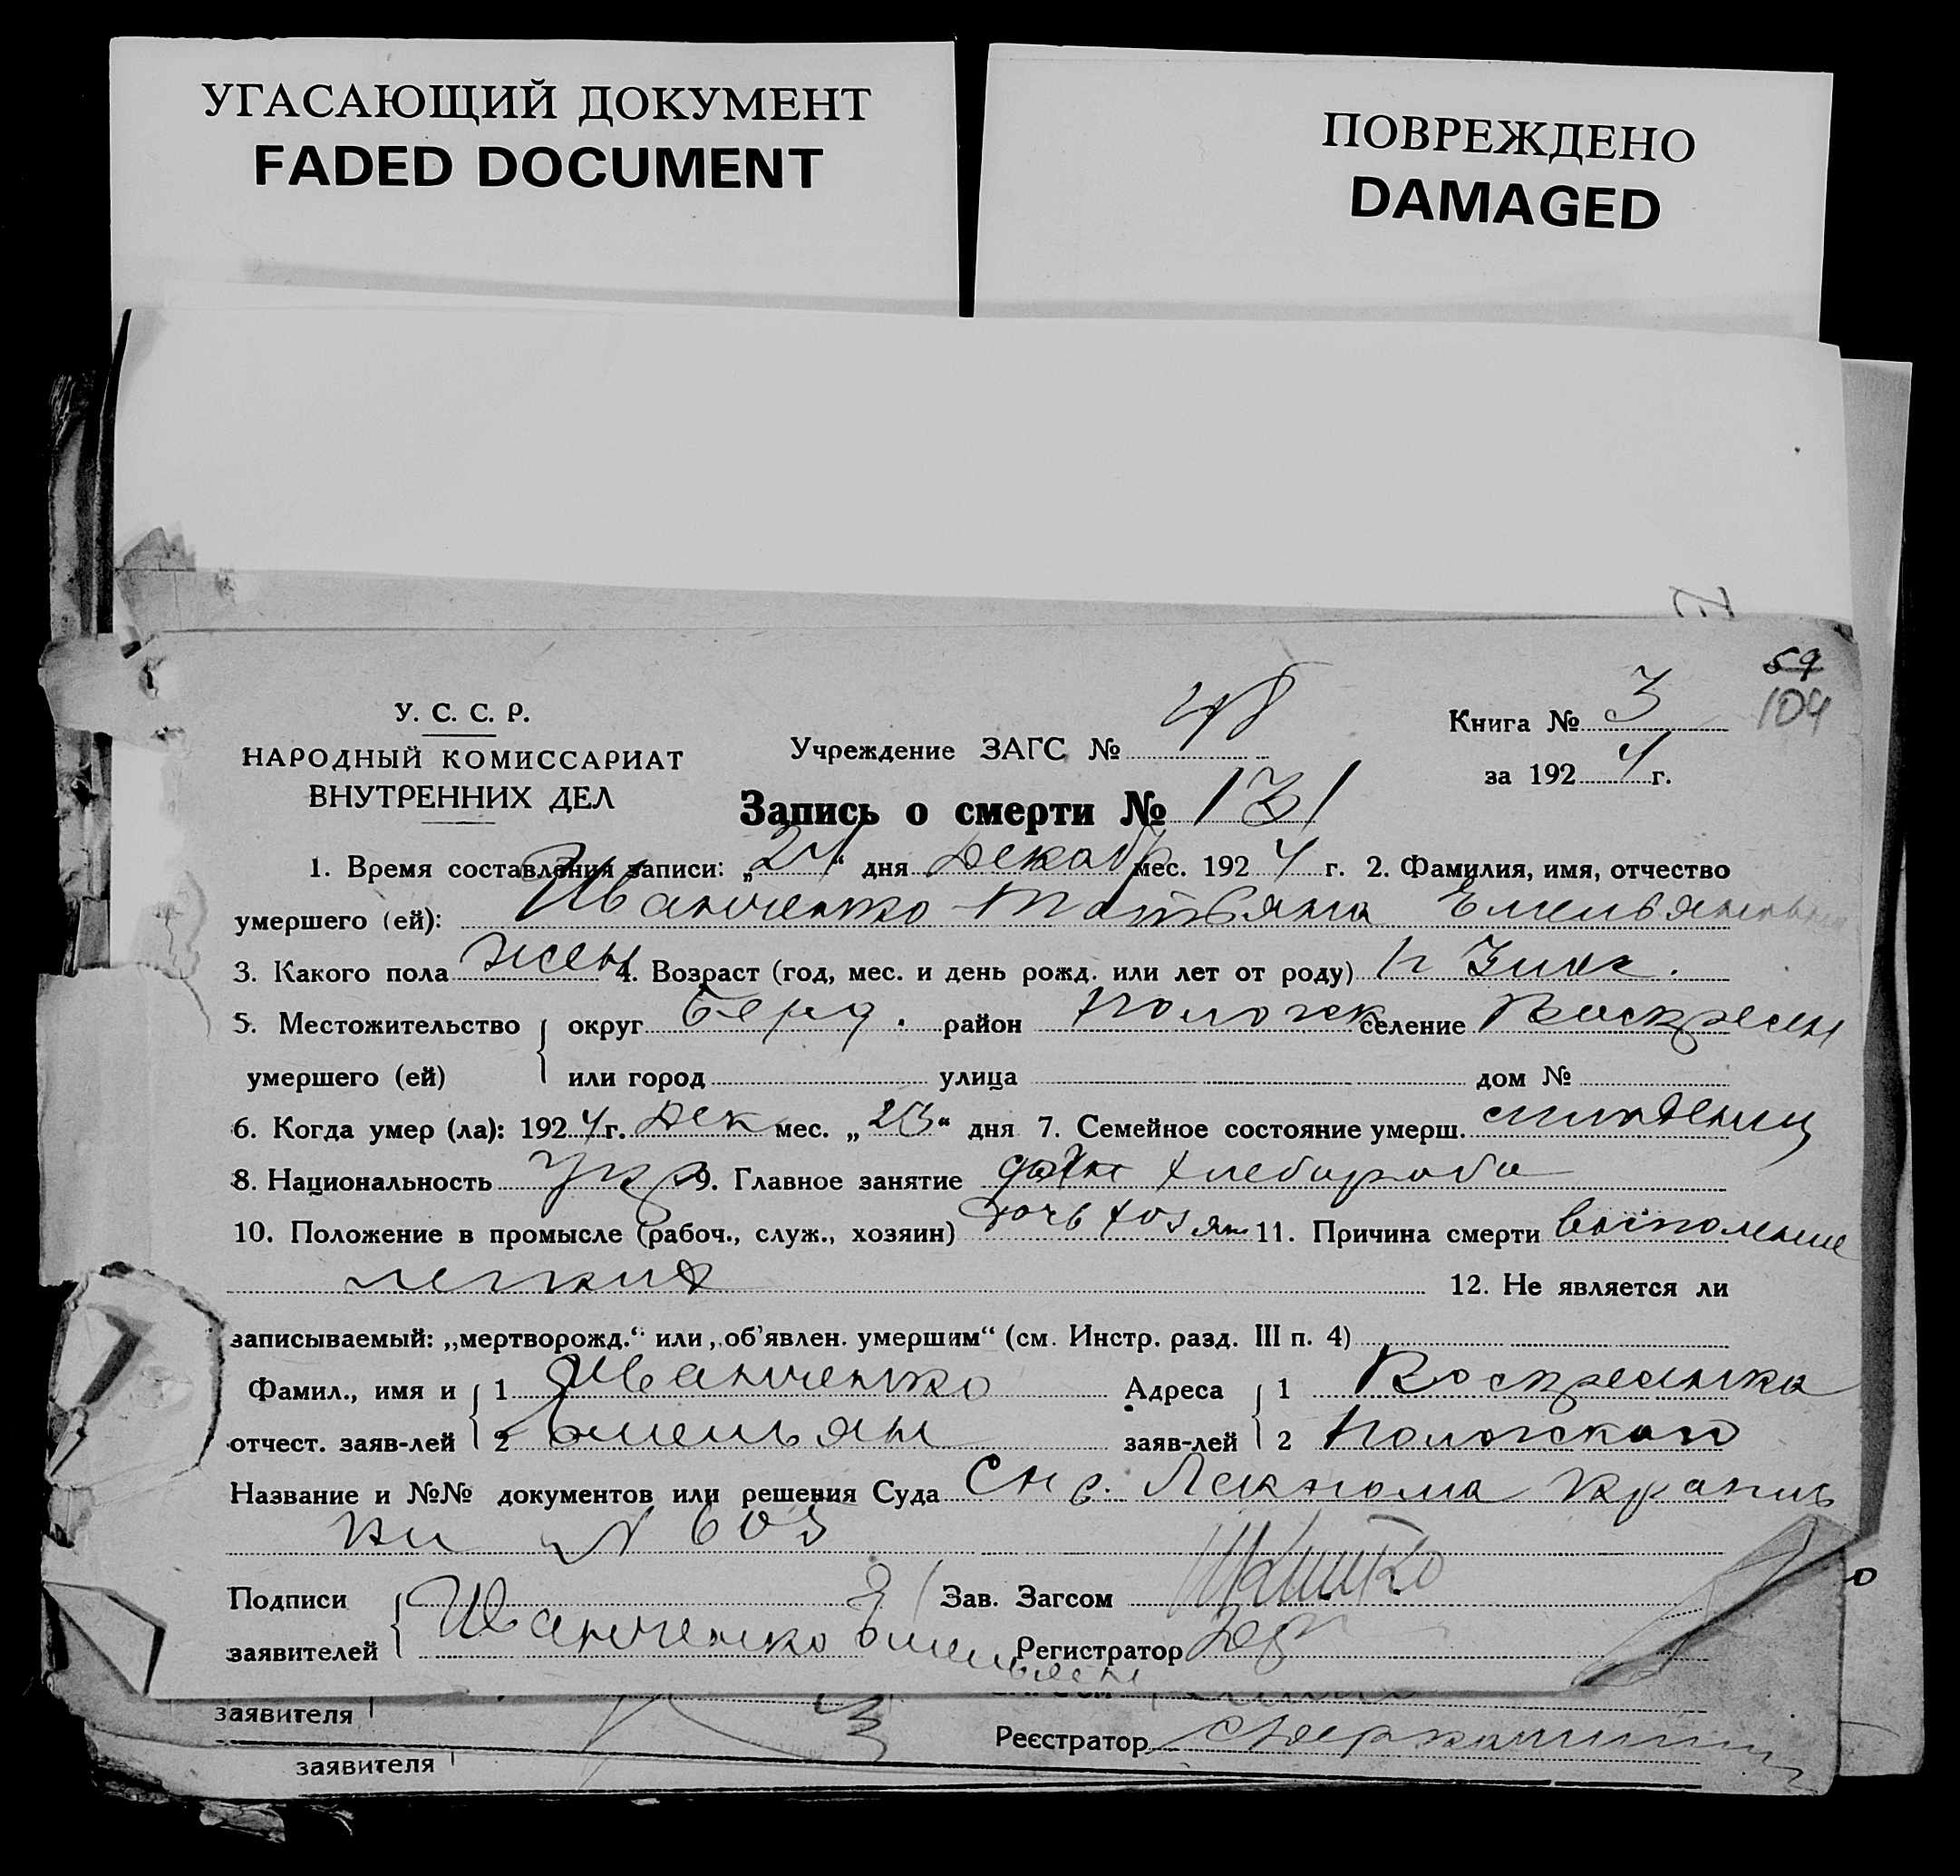 УГАСАЮЩИЙ ДОКУМЕНТ
FADED DOCUMENT
ПОВРЕЖДЕНО
DAMAGED
59
104
У. С. С. Р.
НАРОДНЫЙ КОМИССАРИАТ
ВНУТРЕННИХ ДЕЛ
Учреждение ЗАГС №
Книга № 3
за 1924 г.
Запись о смерти № 131
1. Время составления записи: „24“ дня Декабр мес. 1924 г. 2. Фамилия, имя, отчество
умершего (ей): Иванченко Татьяна Емельяновна
3. Какого пола жен 4. Возраст (год, мес. и день рожд. или лет от роду)
5. Местожительство умершего (ей) { округ Берд. район Пологск селение Воскресен
или город улица дом №
6. Когда умер (ла): 1924 г. Дек мес. „23“ дня 7. Семейное состояние умерш. младенец
8. Национальность Укр 9. Главное занятие дочь хлебороба
10. Положение в промысле (рабоч., служ., хозяин) дочь хозян 11. Причина смерти восполение
легких 12. Не является ли
записываемый: „мертворожд.“ или „об’явлен. умершим“ (см. Инстр. разд. III п. 4)
Фамил., имя и отчест. заяв-лей { 1 Иванченко Адреса заяв-лей { 1 Воскресенка
2 Емельян 2 Пологского
Название и №№ документов или решения Суда
№ 603
Подписи заявителей { Иванченко Емельян Зав. Загсом
Регистратор
заявителя
Реєстратор
заявителя